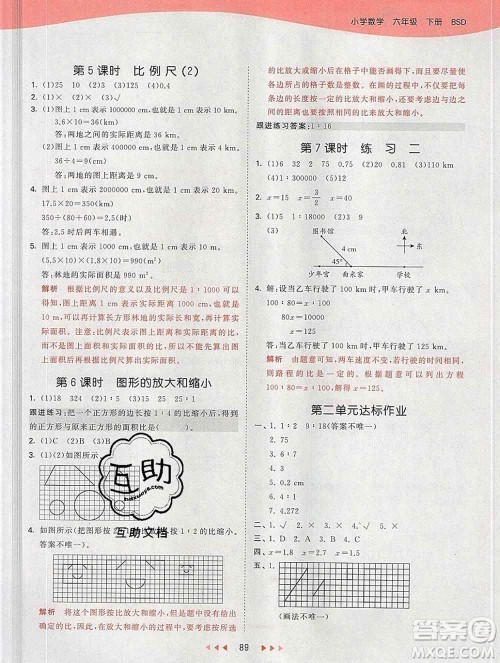 小学数学 六年级 下册 BSD
第5课时 比例尺(2)
1. (1)25 10 (2)3 (3)125 (4)0.4
2. (1)× (2)× (3)√
3. (1)图上1 cm表示1000000 cm,也就是10 km。
3.6×10=36(km)
答:两地之间的实际距离是36 km。
(2)图上1 cm表示400000 cm,也就是4 km。
36÷4=9(cm)
答:两地的图上距离是9 cm。
4. (1)图上1 cm表示2000000 cm,也就是20 km。
17.5×20=350(km)
350÷(80+60)=2.5(时)
答:2.5时后相遇。
(2)图上1 cm表示1000 cm,也就是10 m。
(5.5×10)×(1.8×10)=990(m²)
答:林地的实际面积是990 m²。
解析 根据比例尺的意义以及比例尺1:1000可
以知道图上1 cm表示实际距离1000 cm,也就是
10 m,先计算出长方形林地的实际长和宽,再计
算实际面积。注意:比例尺是图上距离和实际距
离的比,因此不能先计算图上面积,再根据图上
面积和比例尺计算出实际面积。
第6课时 图形的放大和缩小
跟进练习:把一个正方形的边长按1:4缩小,得
到的正方形与原来正方形的面积比是( )。
1. (1)C (2)B (3)B
2. (1)(2)如图所示。
3. 如图所示(把图形按
1:2的比缩小,
答案不唯一)。
解析 将这个图形放大和缩小,就是将这个图形
的比放大或缩小后在格子中画出来,注意尽量使
各边所占的格子数是整数。在画的过程中,不仅
要把边按一定的比放大和缩小,还要把圆也按一
定的比放大和缩小。
跟进练习答案:1:16
第7课时 练习二
1. (1)36 32 2 75 0.75 (2)0.20 (3)110 km
(4)1:300000 (5)2.4 (6)180
2. x=15 x=3/2 x=4
3. (1)1:20000 (2)1000 (2)18 9
(3)
图书馆
4 cm
45°
少年宫 曲水家 学校
北
东
4. 解:设当乙车行驶了100 km时,甲车行驶了x km。
100:80=x:100
80x=100×100
x=125
答:当乙车行驶了100 km时,甲车行驶了125 km。
解析 由题意可知,两车速度不变,时间相等,
则路程的比是一定的,也就是100:80,据此
可列比例解题。
第二单元达标作业
一、1. 1:2 9:18(答案不唯一)
2. 7.5
3. 2.4
4. 4
5. 0.27
6. 1:4000000
二、1. √ 2. √ 3. × 4. √
三、1. A 2. C 3. B 4. A
四、x=1.8 x=1.5 x=2.7
五、1.
(画法不唯一)
互助
互助文档
89
答案圈
MXQE.COM